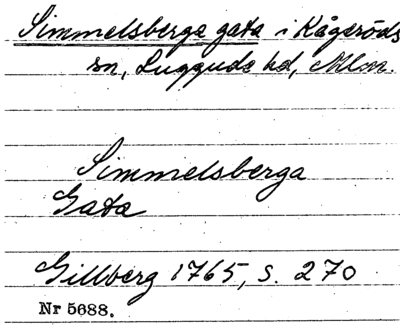 Simmelsberga gata i Kågeröds
sn, Luggude hd, Mlm.
Simmelsberga
Gata
Gillberg 1765, s. 270
Nr 5688.